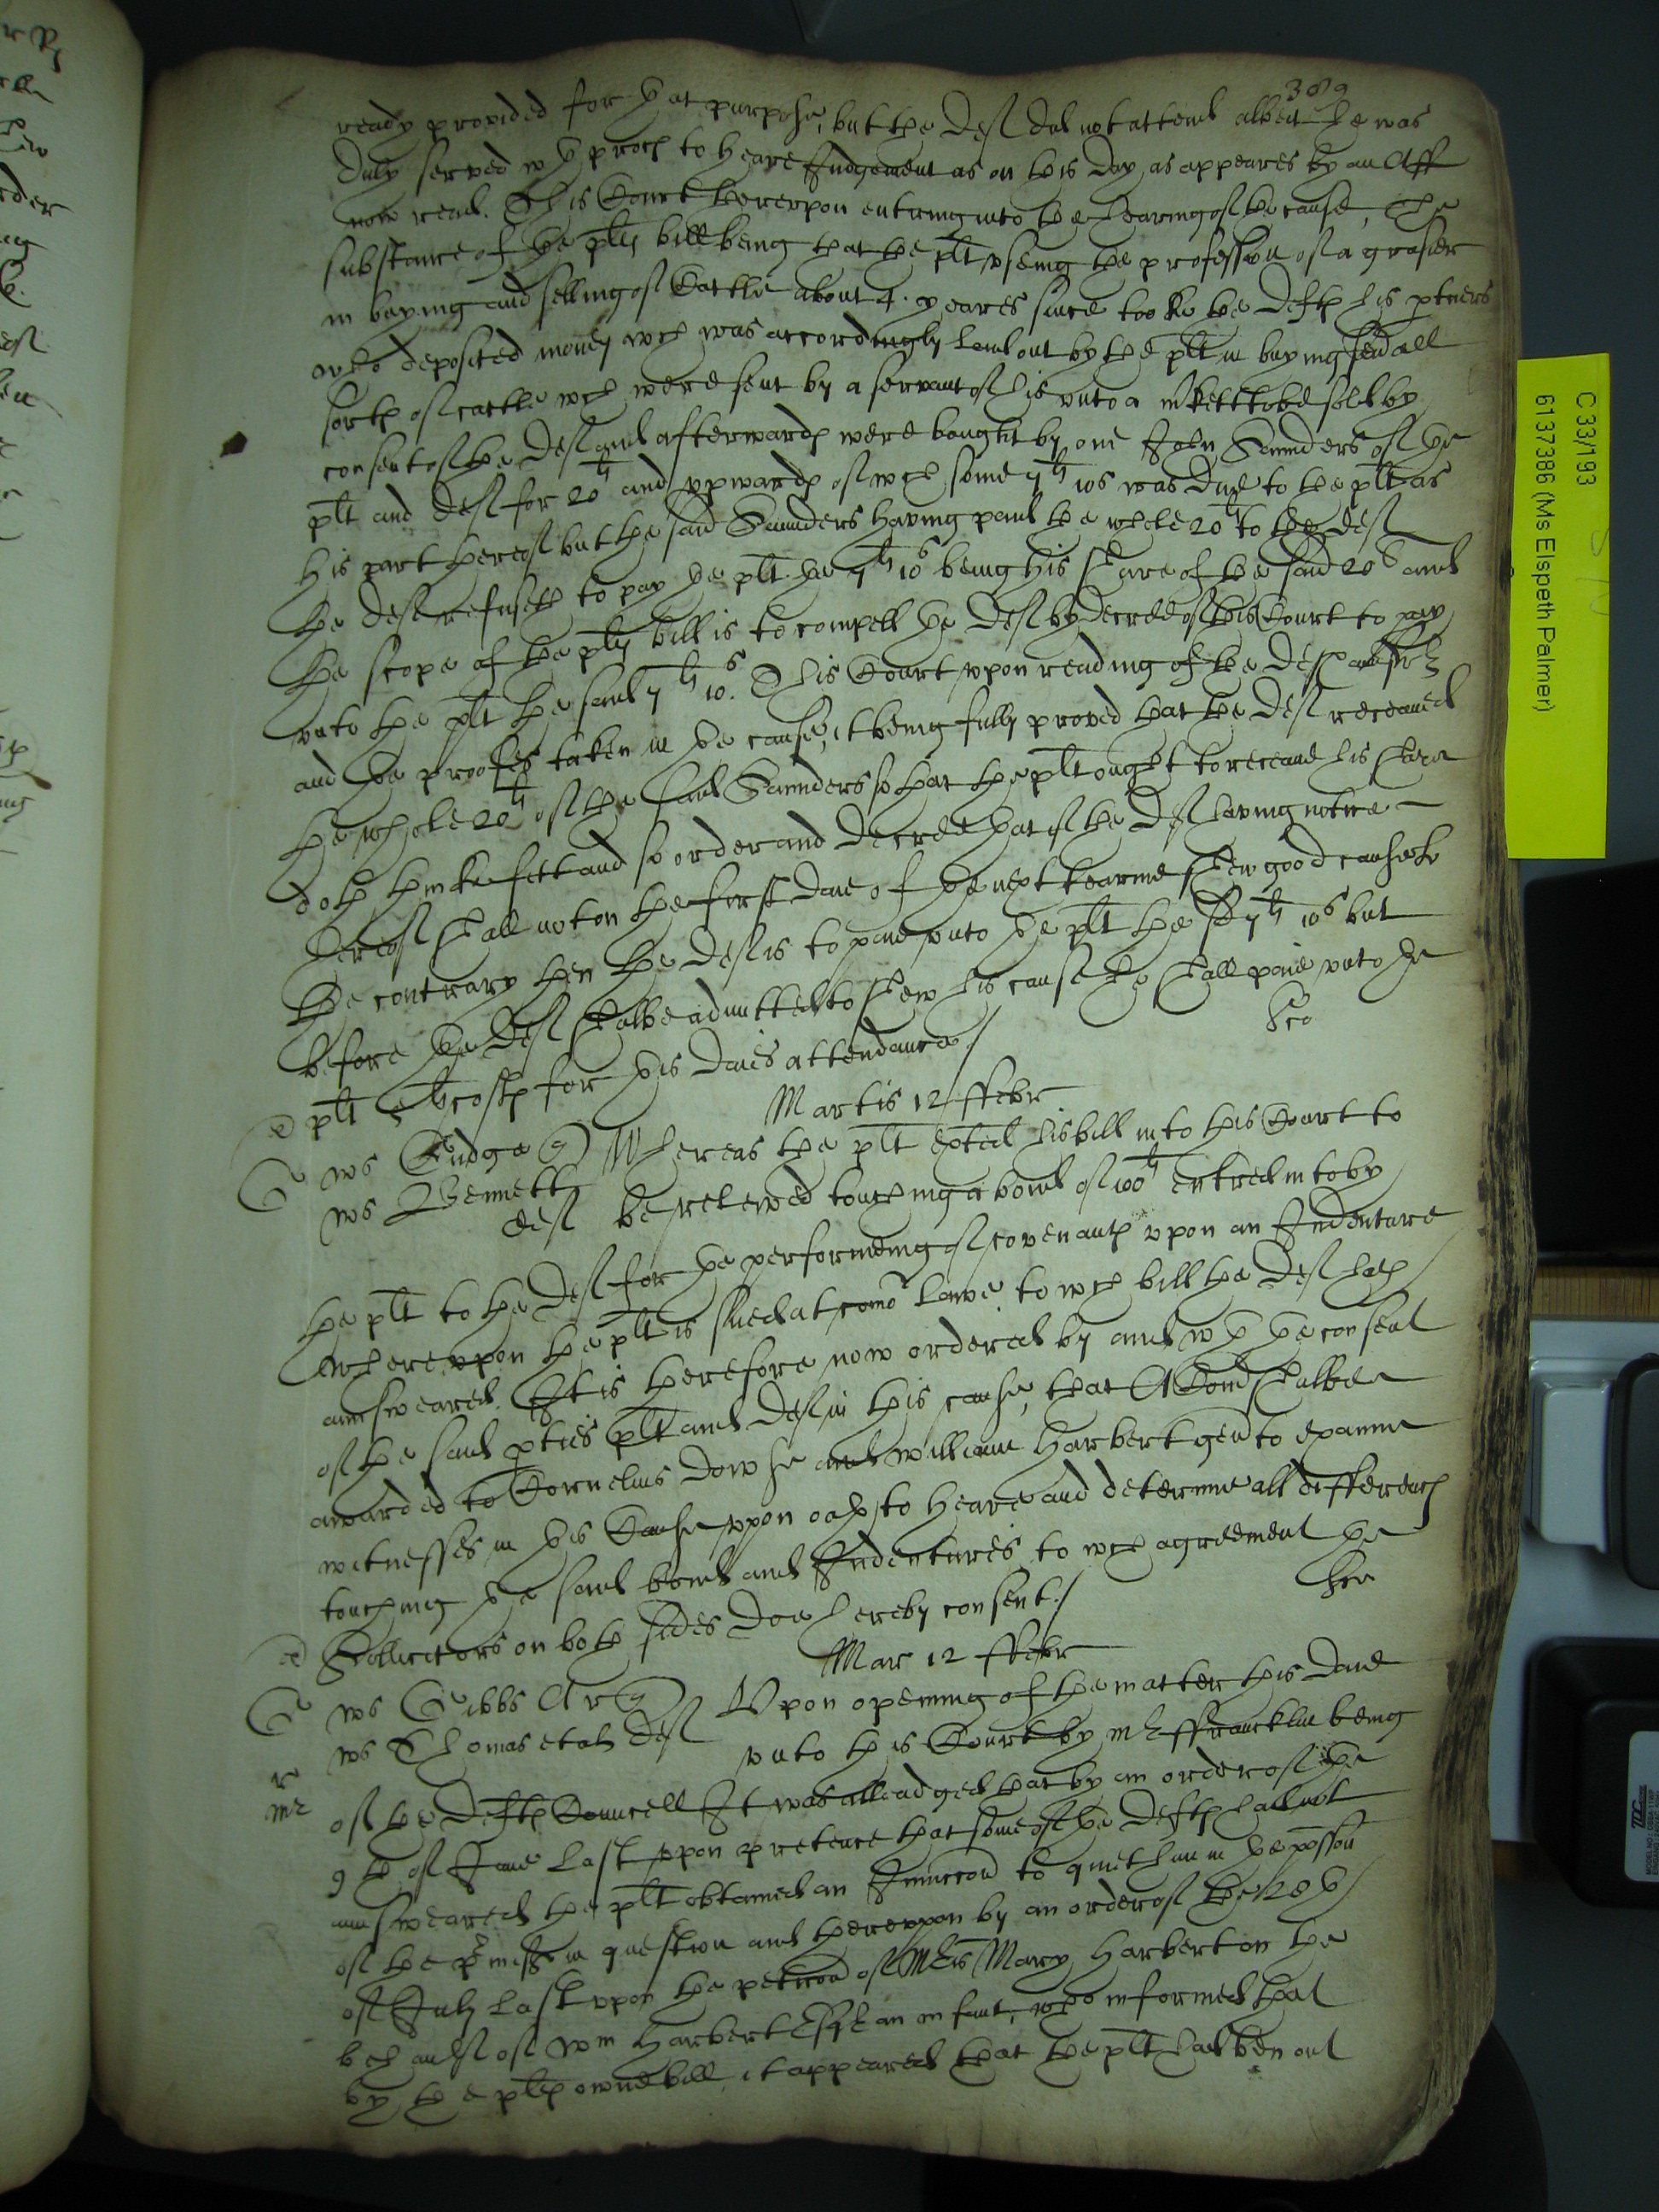 389
ready provided for that purpose, but the Deft did not attend albeit he was
duly served wth proces to heare Judgement as on this day as appeares by an Aff
now read. This Court thereupon entring into the hearing of the cause, The
substance of the plts bill being that the plt useing the profession of a grasier
in buying and selling of Cattle about 4. yeares since tooke the Defts his ptners
who deposited money wch was accordingly laid out by the plt in buying
sorts of cattle wch were sent by a servant of his unto a mkett to be sold by
consent of the Deft and afterwards were bought by one John Saunders of the
plt and Deft for 20li and upwards of wch some 7li 10s was due to the plt as
his part thereof but the said Saunders having paid the whole 20li to the Deft
the Deft refuseth to pay the plt the 7li 10s being his share of the said 20li and
the scope of the plts bill is to compell the Deft by decree of this Court to pay
unto the plt the said 7li 10s. This Court upon reading of the Defts answer
and the proofes taken in the cause, it being fully proved that the Deft receaved
the whole 20li of the said Saunders so that the plt ought to receave his share
doth thinke fitt and so order and decree that if the Deft having notice
hereof shall not on the first daie of the next tearme shew good cause to
the contrary then the Deft is to paie unto the plt the sd 7li 10s but
before the Deft shalbe admitted to shew his cause he shall paie unto the
plt costs for this daies attendance /
Martis 12 ffebr
ws Gudge q Whereas the plt exhted his bill into this Court to
ws Bennett deft be releived touching a bond of 100li entred into by
the plt to the Deft for the performeing of covenants upon an Indenture
whereupon the plt is sued at comon Lawe to wch bill the Deft hath
annsweared. It is therefore now ordered by and wth the consent
of the said pties plt and Deft in this cause, that A Comd shalbe
awarded to Cornelius Dowse and william Harbert gen to examine
witnesses in this Cause upon oath to heare and determine all differences
touching the said bond and Indentures to wch agreement the
Sollicitors on both sides doe hereby consent. /
Mar 12 ffebr
ws Gibbs Ar q Upon opening of the matter this daie
ws Thomas et al Deft unto this Court by mr ffrancklin being
of the Defts Councell It was alleadged that by an order of the
9th of June last upon pretence that some of the Defts had not
annsweared the plt obtained an Iniuccon to quiet him in the possion
of the pmisses in question and thereupon by an order of the 28th
of July last upon the peticon of Mris Mary Harbert on the
behaulf of Wm Harbert Esqr an infant, who informed that
by the plts owne bill it appeared that the plt had ben out
C 33/193
6137386 (Ms Elspeth Palmer)